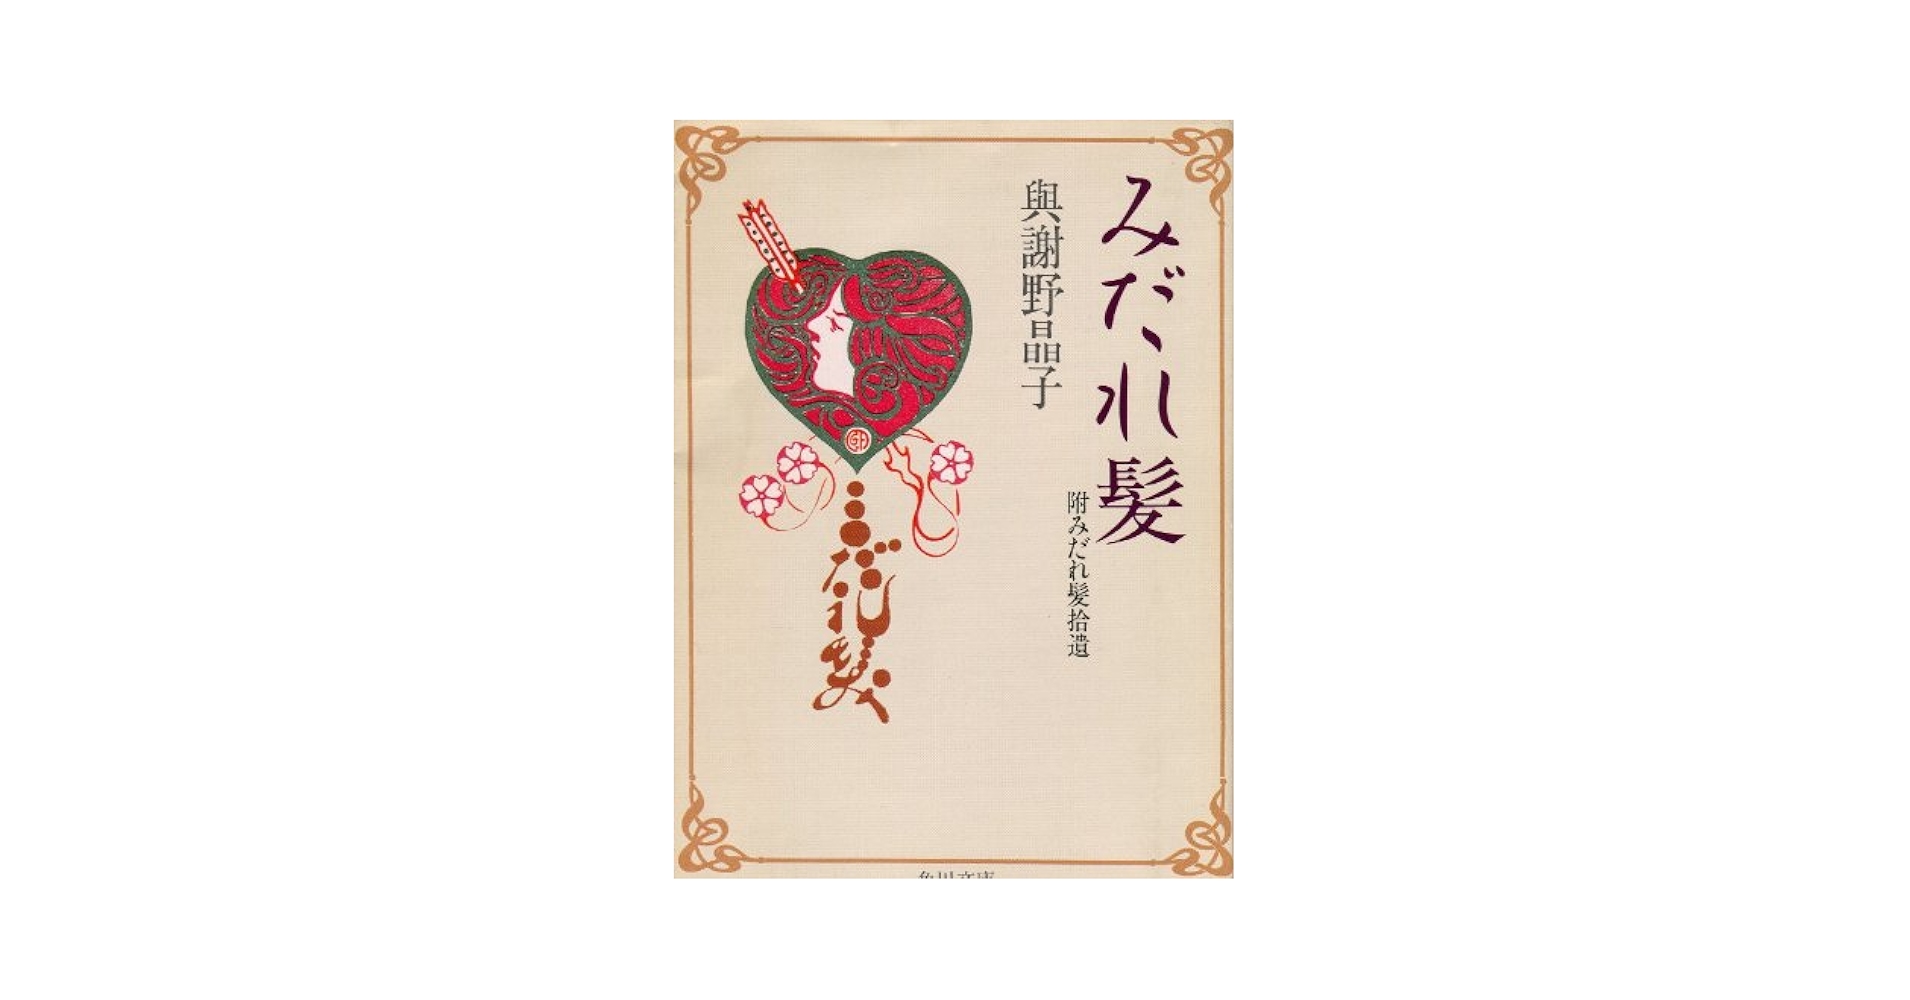 みだれ髪
附みだれ髪拾遺
與謝野晶子
みだれ髪
角川文庫